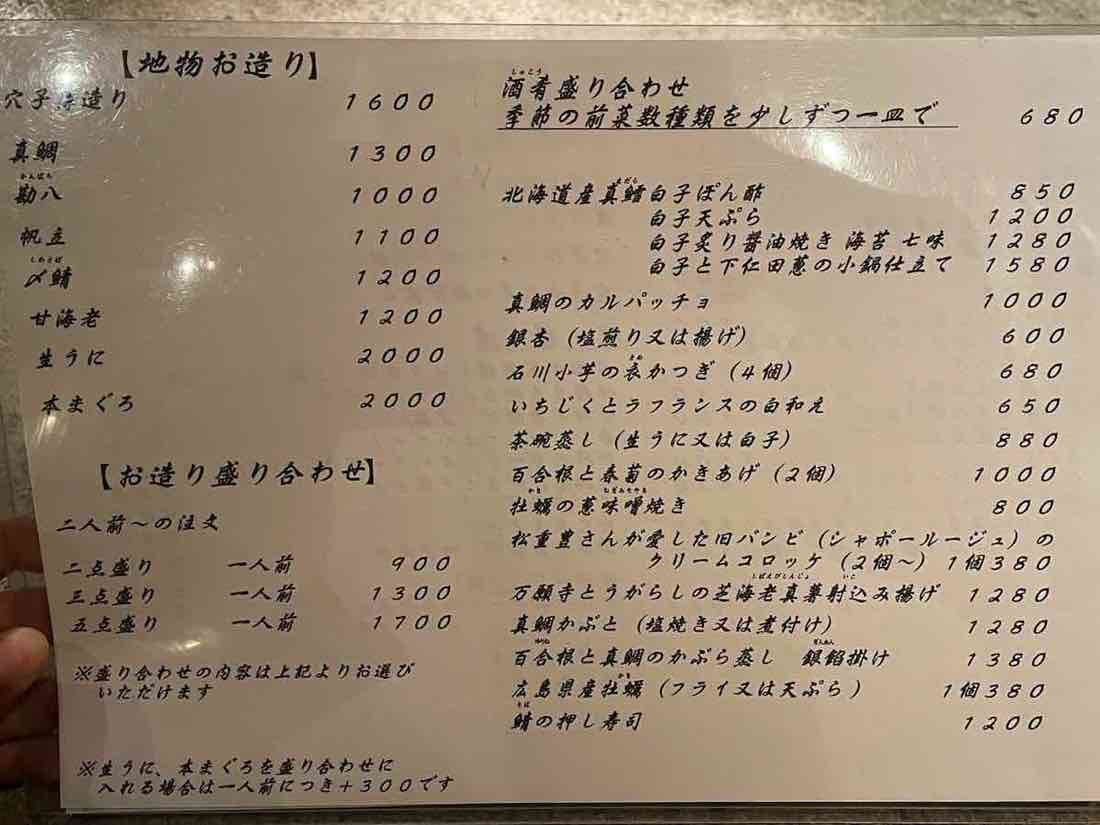 【地物お造り】
穴子 造り 1600
真鯛 1300
かんぱち
勘八 1000
帆立 1100
しめさば
〆鯖 1200
甘海老 1200
生うに 2000
本まぐろ 2000
【お造り盛り合わせ】
二人前～の注文
二点盛り 一人前 900
三点盛り 一人前 1300
五点盛り 一人前 1700
※盛り合わせの内容は上記よりお選び
いただけます
※生うに、本まぐろを盛り合わせに
入れる場合は一人前につき＋300です
しゅこう
酒肴盛り合わせ
季節の前菜数種類を少しずつ一皿で 680
まだら
北海道産真鱈白子ぽん酢 850
白子天ぷら 1200
白子炙り醤油焼き 海苔 七味 1280
白子と下仁田葱の小鍋仕立て 1580
真鯛のカルパッチョ 1000
銀杏（塩煎り又は揚げ） 600
きぬ
石川小芋の衣かつぎ（4個） 680
いちじくとラフランスの白和え 650
茶碗蒸し（生うに又は白子） 880
百合根と春菊のかきあげ（2個） 1000
かき ねぎみそやき
牡蠣の葱味噌焼き 800
松重豊さんが愛した旧バンビ（シャポールージュ）の
クリームコロッケ（2個～）1個380
しばえびしんじょ いこ
万願寺とうがらしの芝海老真薯射込み揚げ 1280
真鯛かぶと（塩焼き又は煮付け） 1280
ゆりね ぎんあん
百合根と真鯛のかぶら蒸し 銀餡掛け 1380
かき
広島県産牡蠣（フライ又は天ぷら） 1個380
さば
鯖の押し寿司 1200